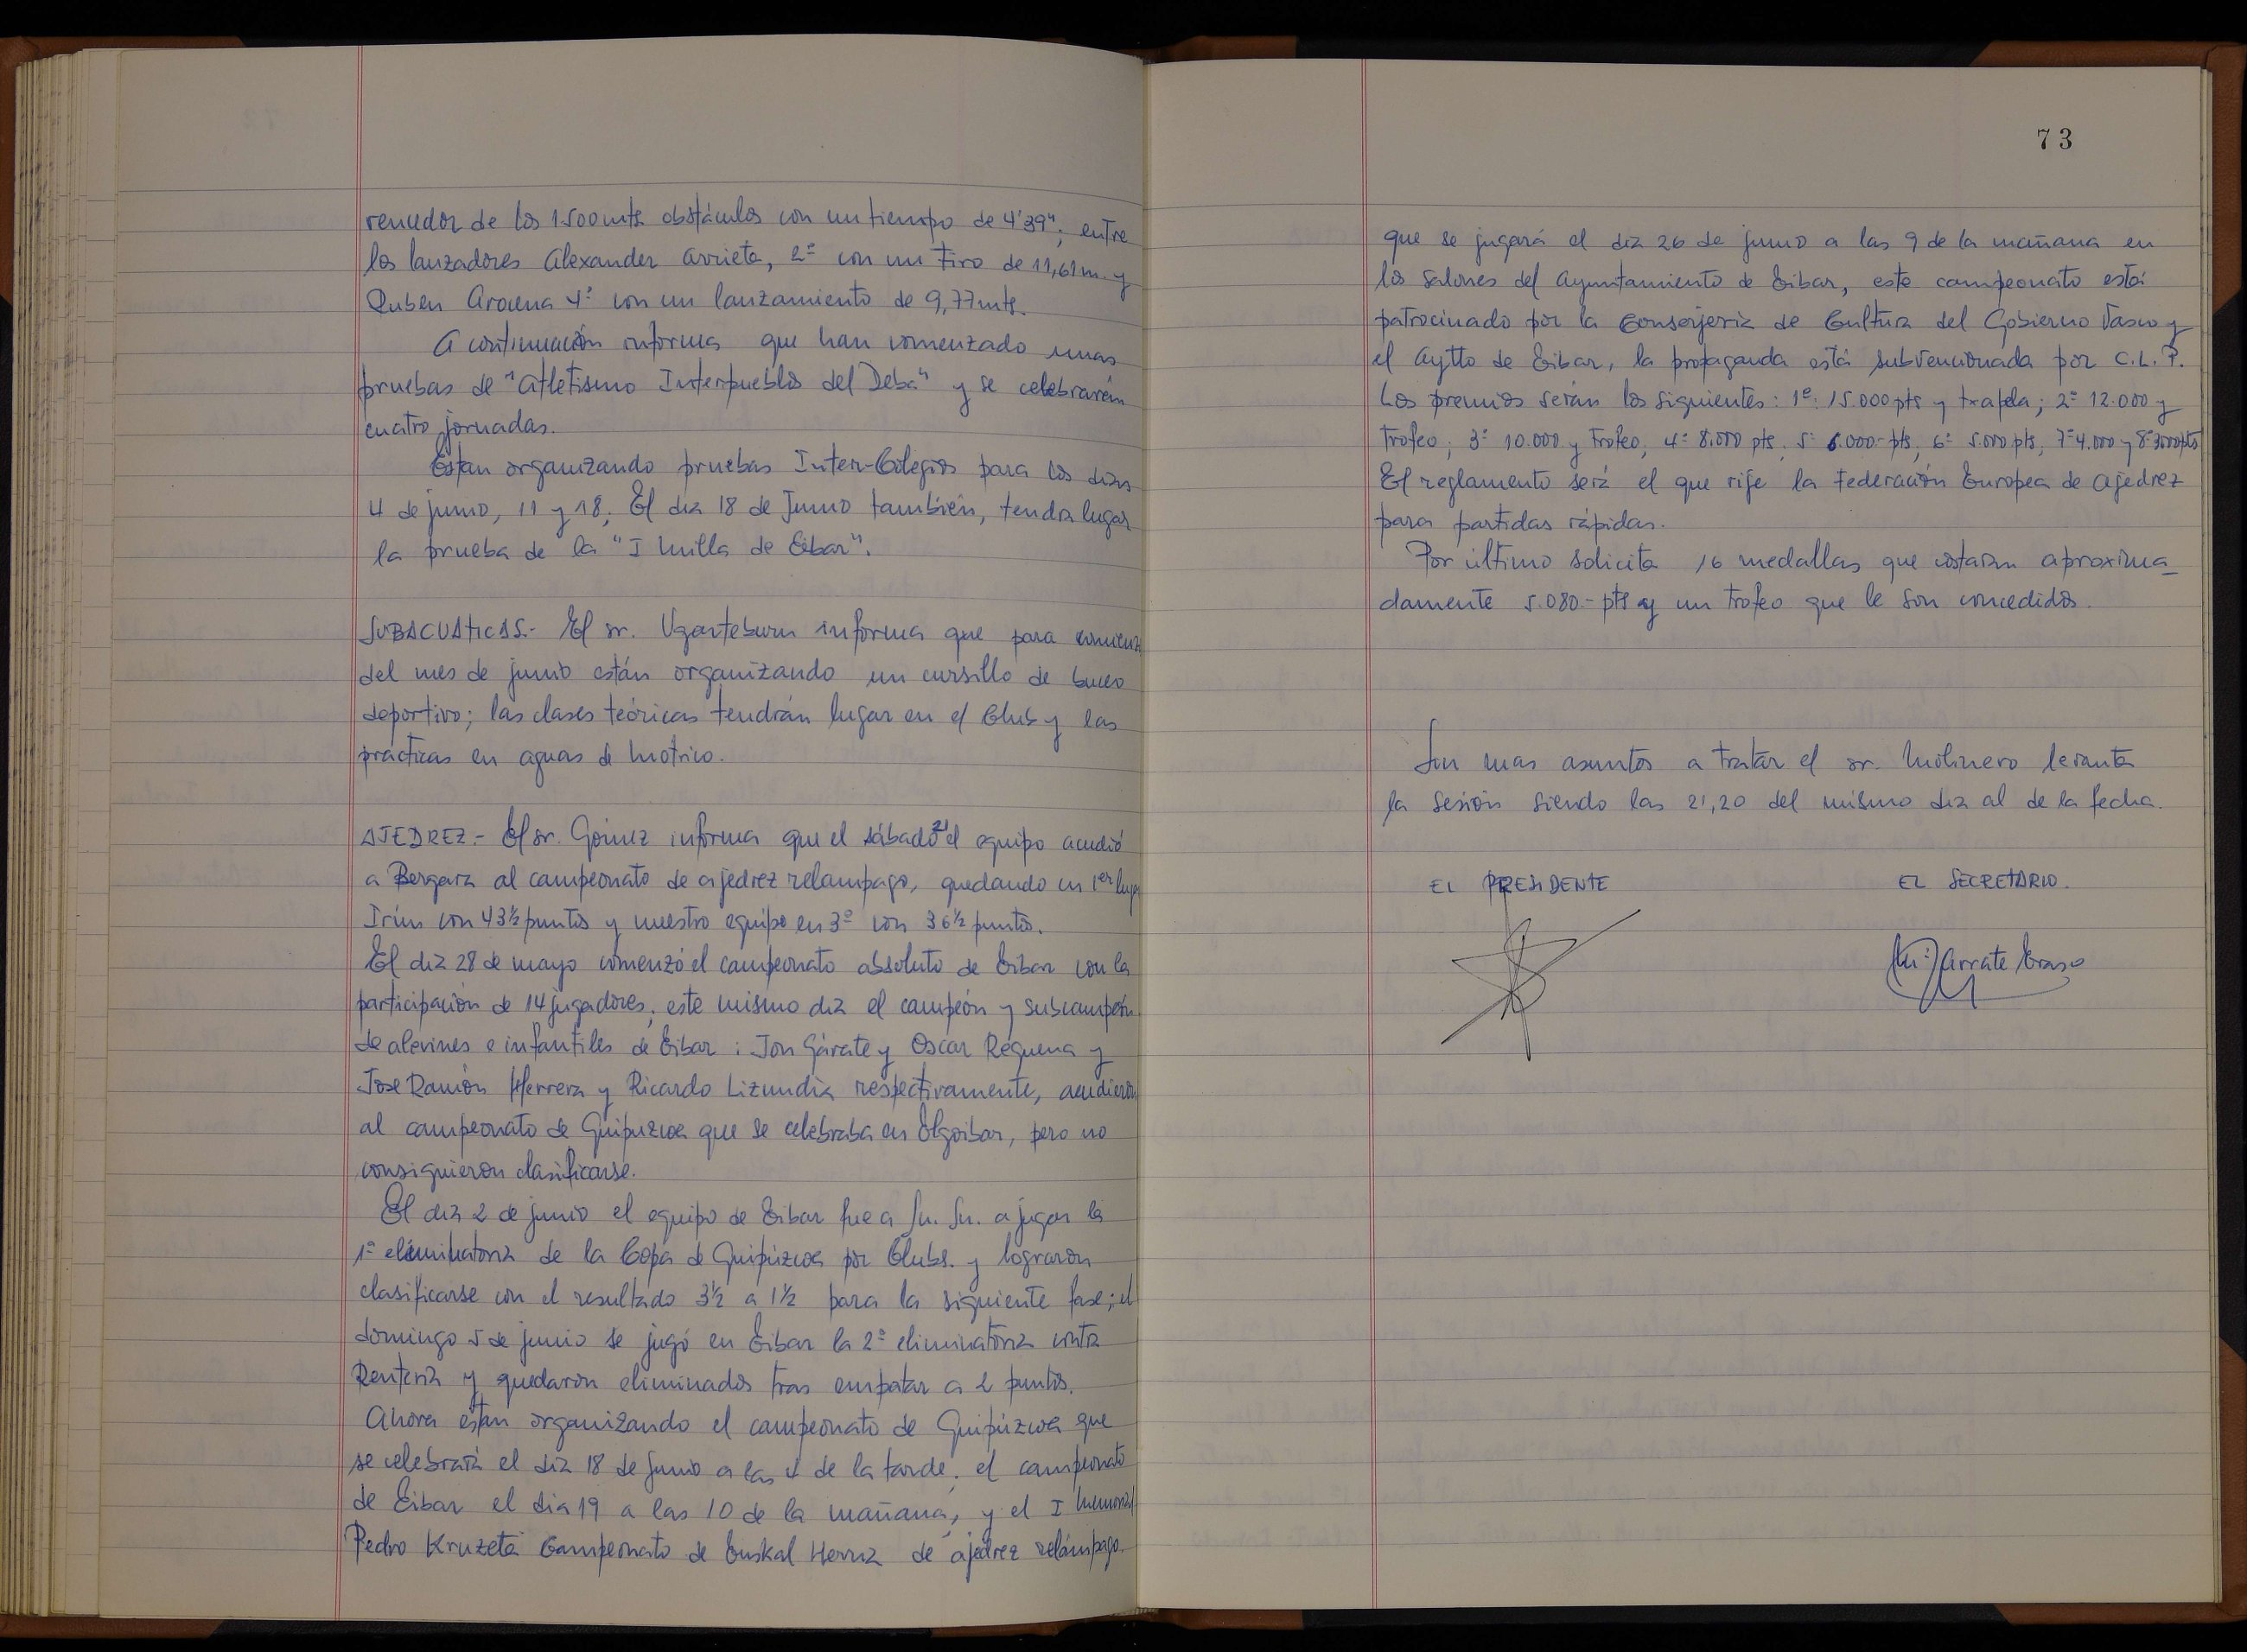 vencedor de los 1500 mts. obstáculos con un tiempo de 4'39", entre
los lanzadores Alexander Arrieta, 2º con un tiro de 11,61 m. y
Ruben Arocena 4º con un lanzamiento de 9,77 mts.
A continuación informa que han comenzado unas
pruebas de "Atletismo Interpueblos del Deba" y se celebrarán
cuatro jornadas.
Estan organizando pruebas Inter-Colegios para los dias
4 de junio, 11 y 18. El dia 18 de Junio también, tendra lugar
la prueba de la "I Milla de Eibar".
SUBACUATICAS.- El sr. Ugarteburu informa que para comienz
del mes de junio están organizando un cursillo de buceo
deportivo; las clases teóricas tendrán lugar en el Club y las
prácticas en aguas de Motrico.
AJEDREZ.- El sr. Gómez informa que el sábado 21 el equipo acudió
a Bergara al campeonato de ajedrez relampago, quedando en 1er lugar
Irún con 43½ puntos y nuestro equipo en 3º con 36½ puntos.
El dia 28 de mayo comenzó el campeonato absoluto de Eibar con la
participación de 14 jugadores; este mismo dia el campeón y subcampeón
de alevines e infantiles de Eibar: Jon Gárate y Oscar Requena y
Jose Ramón Herrera y Ricardo Lizundia respectivamente, acudieron
al campeonato de Guipuzcoa que se celebraba en Elgoibar, pero no
consiguieron clasificarse.
El dia 2 de junio el equipo de Eibar fue a Sn. Sn. a jugar la
1ª eliminatoria de la Copa de Guipúzcoa por Clubs. y lograron
clasificarse con el resultado 3½ a 1½ para la siguiente fase; el
domingo 5 de junio se jugó en Eibar la 2ª eliminatoria contra
Renteria y quedaron eliminados tras empatar a 2 puntos.
Ahora estan organizando el campeonato de Guipúzcoa que
se celebrará el dia 18 de Junio a las 4 de la tarde, el campeonato
de Eibar el dia 19 a las 10 de la mañana, y el I Memorial
Pedro Kruzeta Campeonato de Euskal Herria de ajedrez relámpago
73
que se jugará el dia 26 de junio a las 9 de la mañana en
los salones del Ayuntamiento de Eibar, este campeonato está
patrocinado por la Consejeria de Cultura del Gobierno Vasco y
el Aytto de Eibar, la propaganda está subvencionada por C.L.P.
Los premios serán los siguientes: 1º: 15.000 pts y txapela; 2º 12.000 y
trofeo; 3º 10.000 y trofeo, 4º 8.000 pts, 5º 6.000- pts, 6º 5.000 pts, 7º 4.000 y 8º 3000 pts
El reglamento será el que rije la Federación Europea de Ajedrez
para partidas rápidas.
Por último solicita 16 medallas que costarán aproxima_
damente 5.080.- pts y un trofeo que le son concedidos.
Sin mas asuntos a tratar el sr. Molinero levanta
la sesión siendo las 21,20 del mismo dia al de la fecha.
EL PRESIDENTE
EL SECRETARIO.
Mª Arrate Eraso